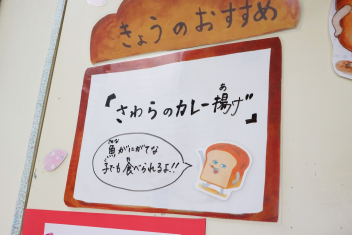 きょうのおすすめ
「さわらのカレー揚げ」
魚がにがてな
子でも食べられるよ!!